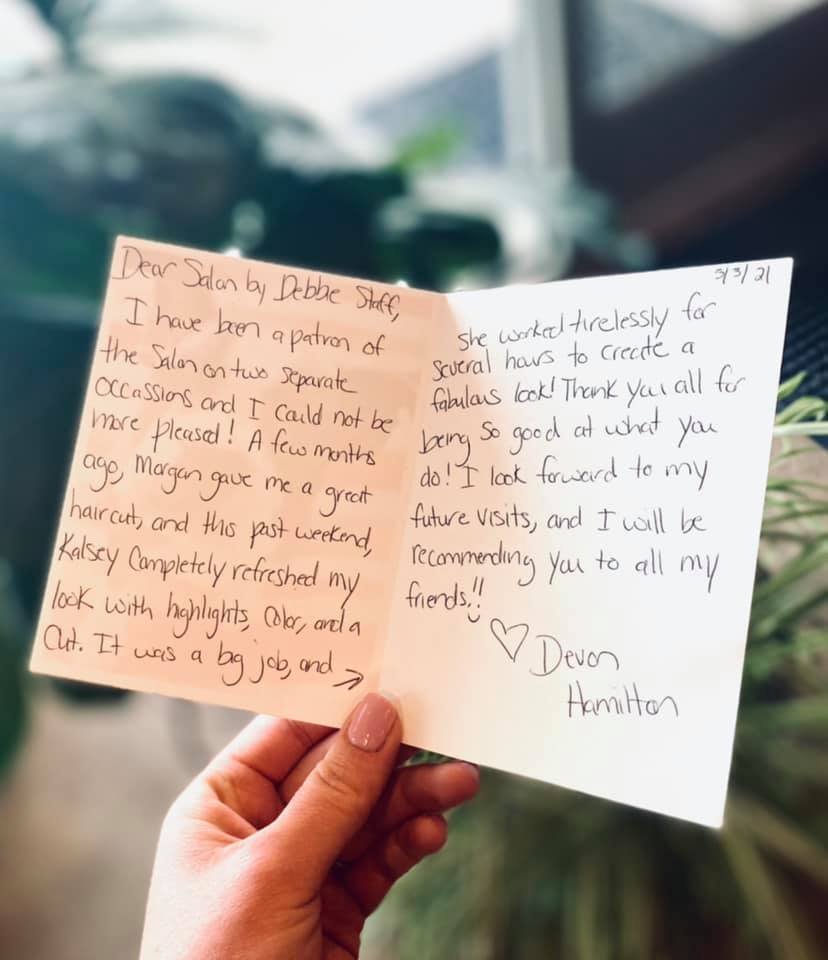 Dear Salon by Debbe Staff,
I have been a patron of
the Salon on two separate
occassions and I could not be
more pleased! A few months
ago, Morgan gave me a great
haircut, and this past weekend,
Kalsey completely refreshed my
look with highlights, color, and a
cut. It was a big job, and →
3/3/21
she worked tirelessly for
several hours to create a
fabulous look! Thank you all for
being so good at what you
do! I look forward to my
future visits, and I will be
recommending you to all my
friends!!
♡ Devon
Hamilton